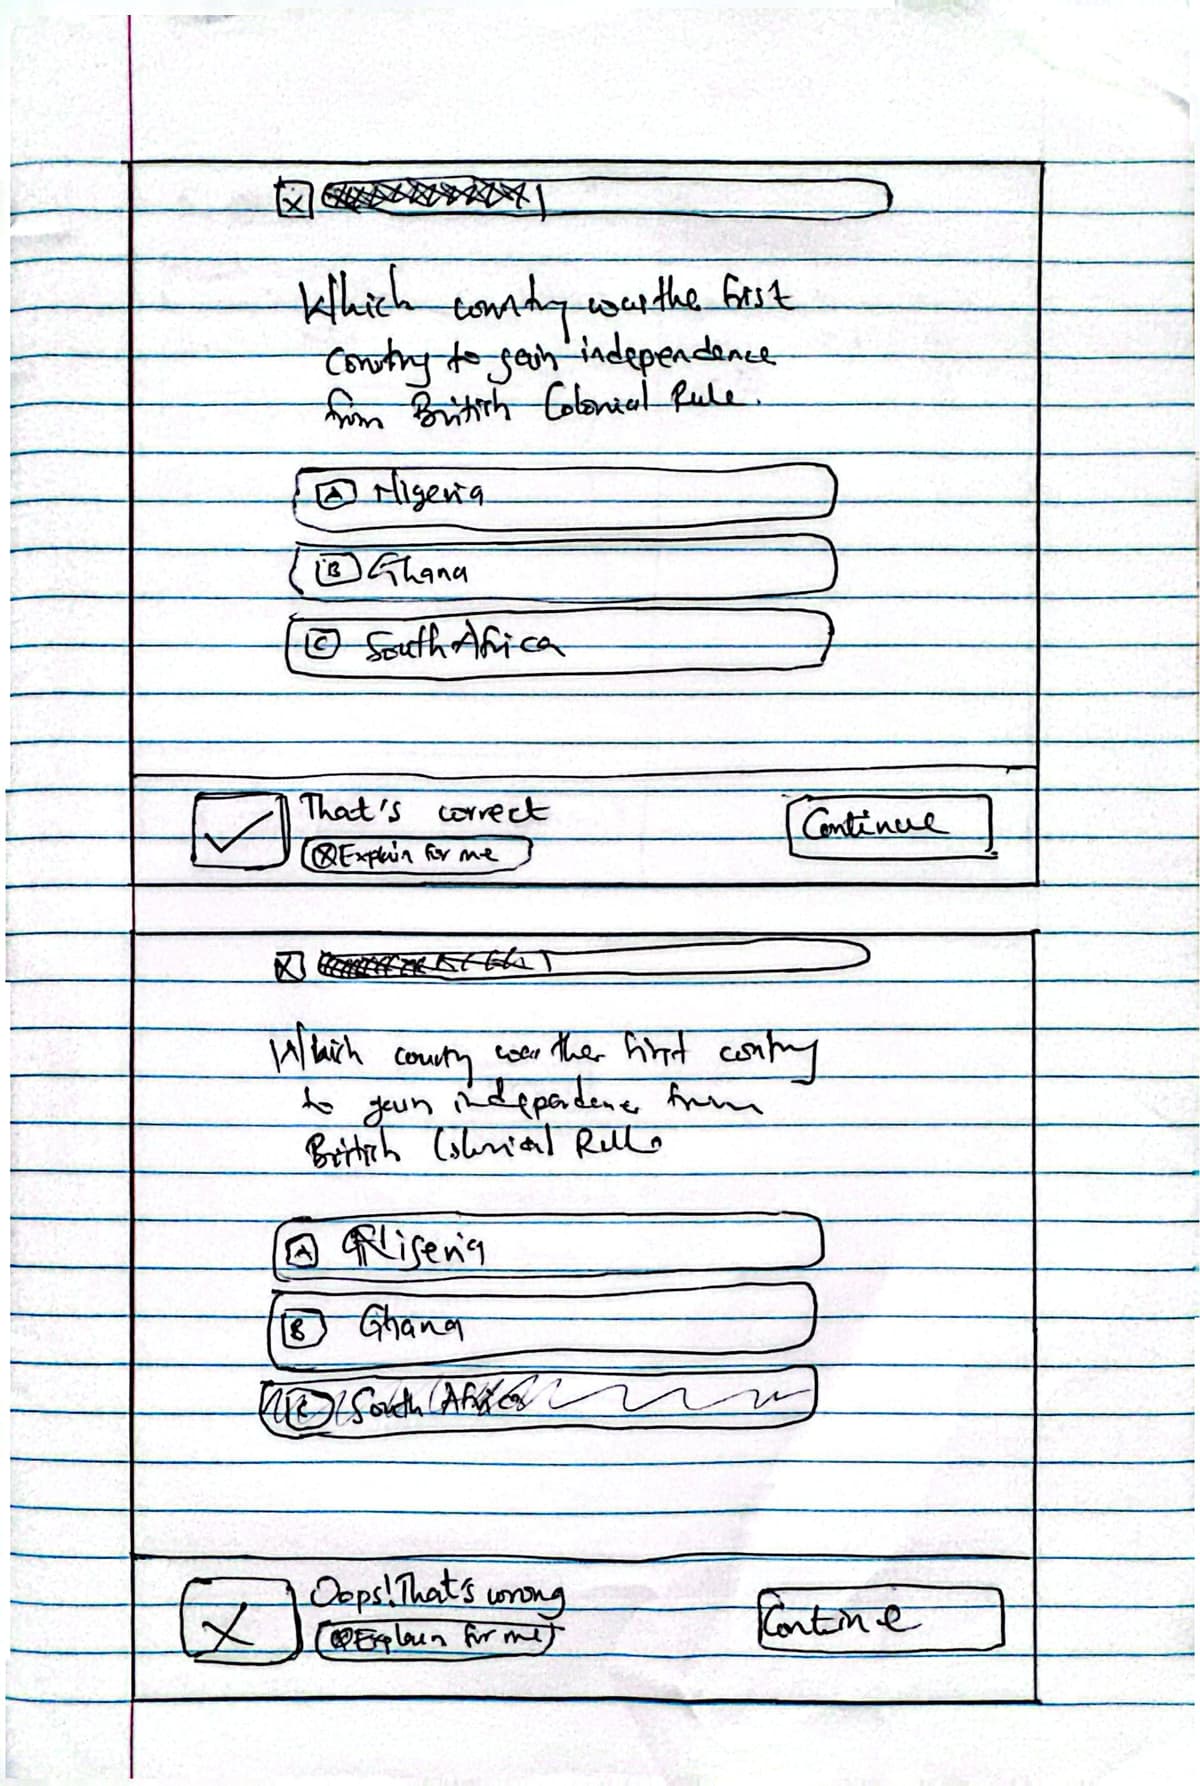 X
Which country was the first
country to gain independence
from British Colonial Rule.
A Nigeria
B Ghana
C South Africa
That's correct
Explain for me
Continue
X
Which country was the first country
to gain independence from
British Colonial Rule
A Nigeria
B Ghana
C South Africa
Oops! That's wrong
Explain for me
Continue